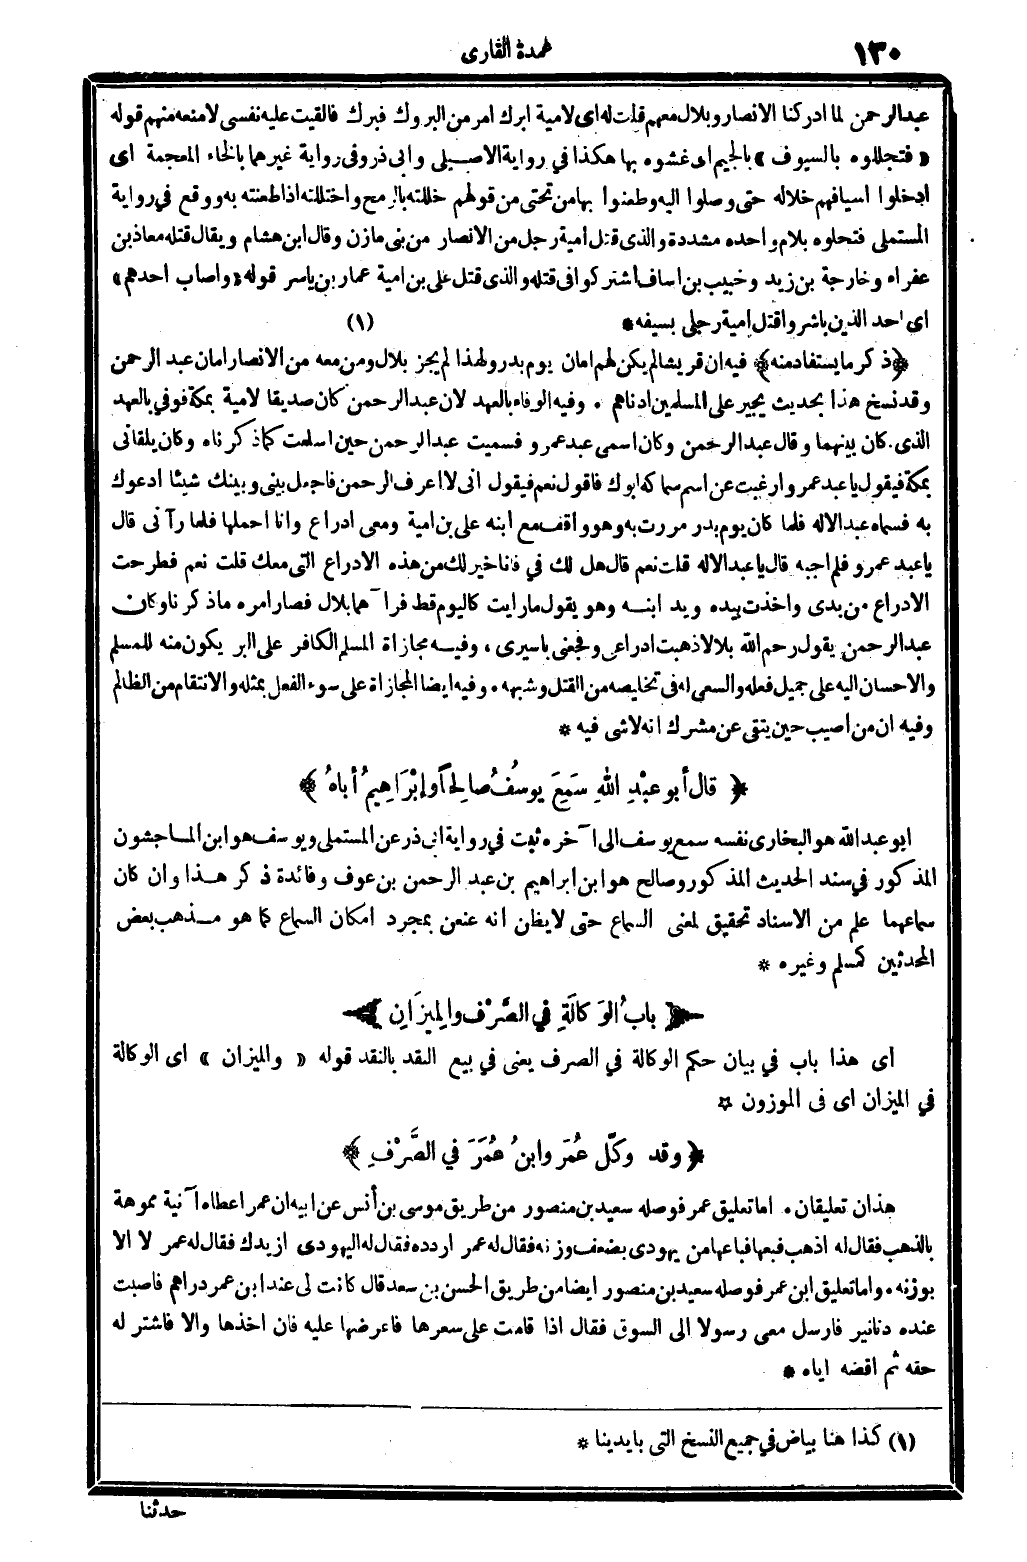 ١٣٠
عمدة القارى
عبدالرحمن لما ادركنا الانصار وبلال معهم قلت له اى لامية ابرك امر من البروك فبرك فالقيت عليه نفسى لامنعه منهم قوله
«فتجللوه بالسيوف» بالجيم اى غشوه بها هكذا في رواية الاصيلى وابى ذر وفى رواية غيرهما بالخاء المعجمة اى
ادخلوا اسيافهم خلاله حتى وصلوا اليه وطعنوا بها من تحتى من قولهم خللته بالرمح واختللته اذا طعنته به ووقع في رواية
المستملى فتحلوه بلام واحده مشددة والذى قتل أمية رجل من الانصار من بنى مازن وقال ابن هشام ويقال قتله معاذ بن
عفراء وخارجة بن زيد وخبيب بن اساف اشتركوا فى قتله والذى قتل على بن امية عمار بن ياسر قوله «واصاب احدهم»
اى احد الذين باشروا قتل امية رجلى بسيفه * (١)
﴿ذكر ما يستفاد منه﴾ فيه ان قريشا لم يكن لهم امان يوم بدر ولهذا لم يجز بلال ومن معه من الانصار امان عبد الرحمن
وقد نسخ هذا بحديث يجير على المسلمين ادناهم . وفيه الوفاء بالعهد لان عبدالرحمن كان صديقا لامية بمكة فوفى بالعهد
الذى كان بينهما وقال عبدالرحمن وكان اسمى عبد عمرو فسميت عبدالرحمن حين اسلمت كما ذكرناه وكان يلقانى
بمكة فيقول يا عبد عمرو ارغبت عن اسم سماكه ابوك فاقول نعم فيقول انى لا اعرف الرحمن فاجعل بينى وبينك شيئا ادعوك
به فسماه عبد الاله فلما كان يوم بدر مررت به وهو واقف مع ابنه على بن امية ومعى ادراع وانا احملها فلما رآنى قال
يا عبد عمرو فلم اجبه قال يا عبد الاله قلت نعم قال هل لك في فانا خير لك من هذه الادراع التى معك قلت نعم فطرحت
الادراع من يدى واخذت بيده ويد ابنه وهو يقول ما رايت كاليوم قط فرآهما بلال فصار امره ما ذكرنا وكان
عبدالرحمن يقول رحم الله بلالا ذهبت ادراعى وفجعنى باسيرى . وفيه مجازاة المسلم الكافر على البر يكون منه للمسلم
والاحسان اليه على جميل فعله والسعى له فى تخليصه من القتل وشبهه . وفيه ايضا المجازاة على سوء الفعل بمثله والانتقام من الظالم
وفيه ان من اصيب حين يتقى عن مشرك انه لا شى فيه *
﴿ قال أبو عَبْدِ اللهِ سَمِعَ يوسُفُ صالِحاً وإبْرَاهِيمُ أباهُ ﴾
ابو عبدالله هو البخارى نفسه سمع يوسف الى آخره ثبت في رواية ابى ذر عن المستملى ويوسف هو ابن الماجشون
المذكور في سند الحديث المذكور وصالح هو ابن ابراهيم بن عبد الرحمن بن عوف وفائدة ذكر هذا وان كان
سماعهما علم من الاسناد تحقيق لمعنى السماع حتى لا يظن انه عنعن بمجرد امكان السماع كما هو مذهب بعض
المحدثين كمسلم وغيره *
﴿ بابُ الوَكالَةِ في الصَّرْفِ والمِيزَانِ ﴾
اى هذا باب في بيان حكم الوكالة في الصرف يعنى في بيع النقد بالنقد قوله «والميزان» اى الوكالة
في الميزان اى فى الموزون *
﴿ وقد وكَّلَ عُمَر وابنُ عُمَرَ في الصَّرْفِ ﴾
هذان تعليقان . اما تعليق عمر فوصله سعيد بن منصور من طريق موسى بن أنس عن ابيه ان عمر اعطاه آنية مموهة
بالذهب فقال له اذهب فبعها فباعها من يهودى بضعف وزنه فقال له عمر اردده فقال له اليهودى ازيدك فقال له عمر لا الا
بوزنه . واما تعليق ابن عمر فوصله سعيد بن منصور ايضا من طريق الحسن بن سعد قال كانت لى عند ابن عمر دراهم فاصبت
عنده دنانير فارسل معى رسولا الى السوق فقال اذا قامت على سعرها فاعرضها عليه فان اخذها والا فاشتر له
حقه ثم اقضه اياه *
(١) كذا هنا بياض في جميع النسخ التى بايدينا *
حدثنا